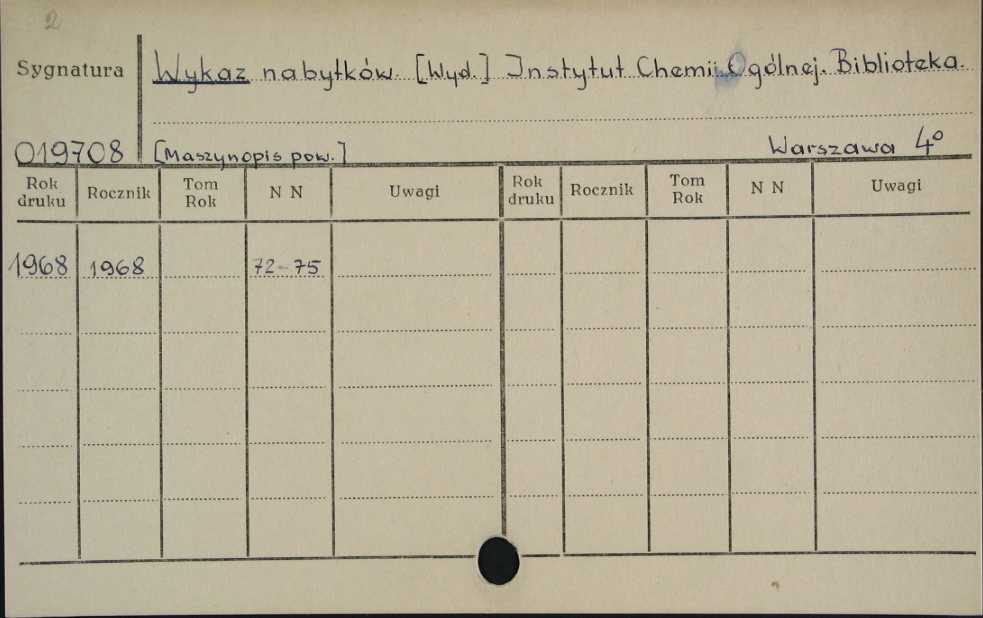 2
Sygnatura
Wykaz nabytków. [Wyd.] Instytut Chemii Ogólnej. Biblioteka.
019708
[Maszynopis pow.]
Warszawa 4º
Rok druku Rocznik Tom Rok N N Uwagi Rok druku Rocznik Tom Rok N N Uwagi
1968 1968 72-75